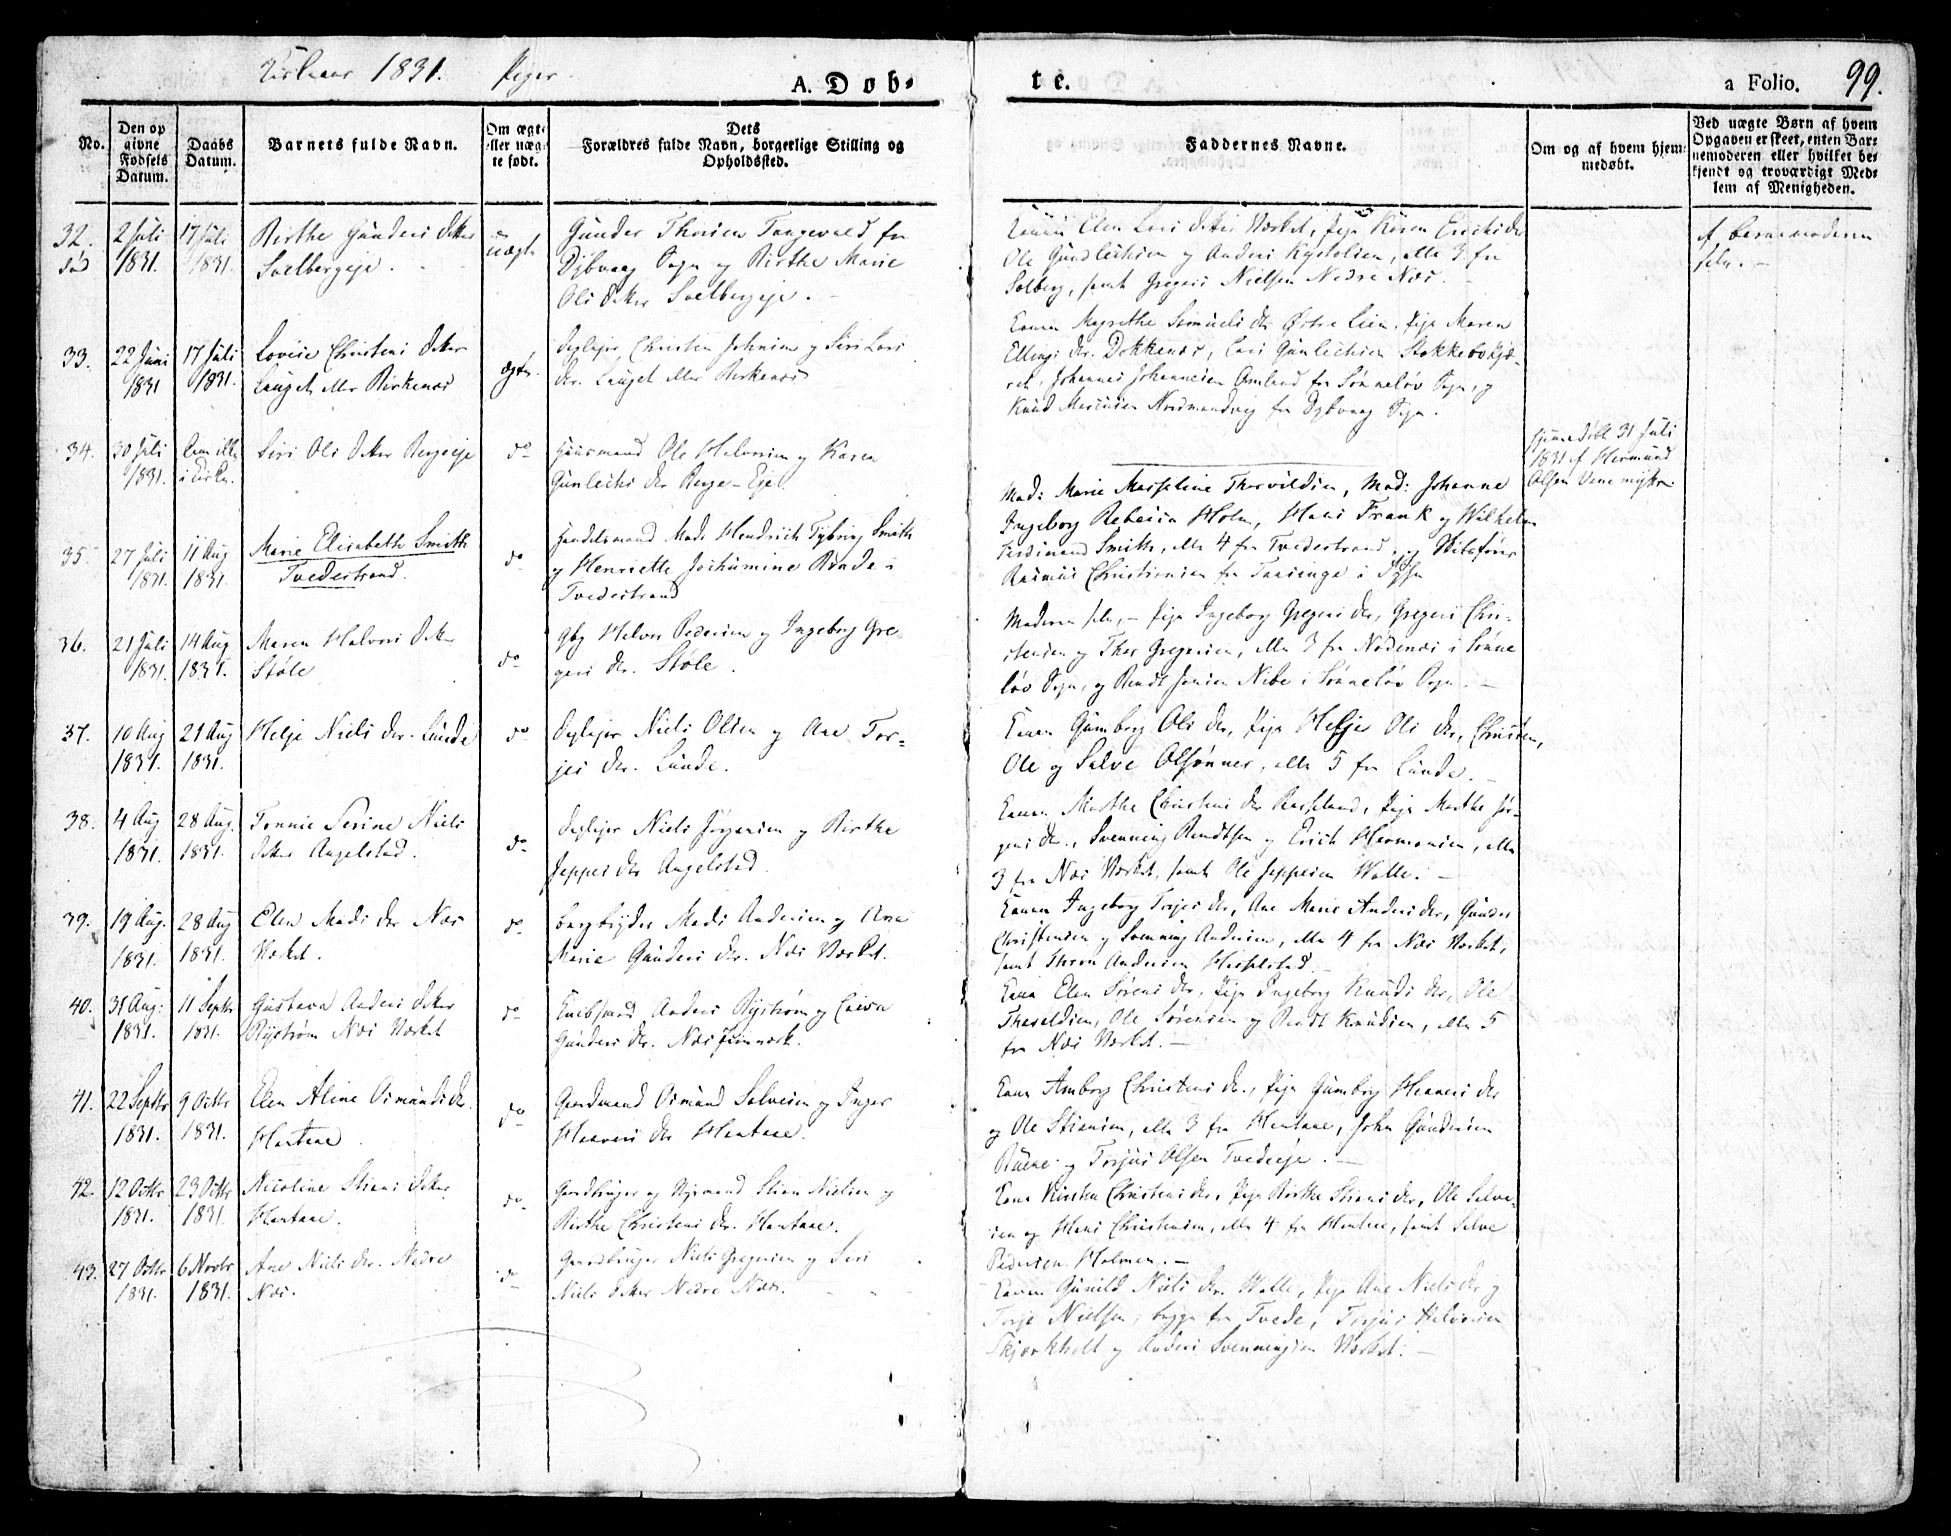 Kirkeaar 1831. Piger.
A. Døb-
te.
a Folio. 99.
No.
Den op
givne
Fødsels
Datum.
Daabs
Datum.
Barnets fulde Navn.
Om ægte
eller uæg-
te født.
Dets
Forældres fulde Navn, borgerlige Stilling og
Opholdssted.
Faddernes Navne.
Om og af hvem hjem-
medøbt.
Ved uægte Børn af hvem
Opgaven er skeet, enten Bar-
nemoderen eller hvilket be-
kjendt og troværdigt Med-
lem af Menigheden.
32.
død
2 Juli
1831.
17 Juli
1831.
Birthe Gunders dtter
Solbergeie.
uægte
Gunder Thorsen Tangevald fra
Dybvaag Sogn og Birthe Marie
Ols dtter Solbergeie.
Ole Gundlechsen og Anders Kystolsen, alle 3 fra
Solberg, samt Gregers Nielsen Nedre Næs.
af Barnemoderen
selv.
33.
22 Juni
1831
17 Juli
1831.
Lovise Christens dtter
Lauget eller Birkenæs
ægte.
Christen Johnsen og Siri Lars
dtr. Lauget eller Birkenæs
Konen Magrethe Samuels dtr Østre Lien, Pige Maren
Ellings dtr. Dokkenæs, Lars Gunlechsen Stokkebokjær-
Knud Marcusen Nordmandvig fra Dybvaag Sogn.
34.
30 Juli
1831.
Siri Ols dtter Bergeeie
do
Huusmand Ole Halvorsen og Karen
Gunlechs dtr Berge-Eje
hjemmedøbt 31 Juli
1831 af Hermund
Olsen Venemyhr.
35.
27 Juli
1831.
11 Aug
1831.
Marie Elisabeth Smith
Tvedestrand.
do
Handelsmand Mads Hendrich Tybring Smith
og Henriette Jochumine Bonde i
Tvedestrand
Mad: Marie Marseline Thorvildsen, Mad: Johanne
Ingeborg Rebecca Holm, Hans Frank og Wilhelm
Ferdinand Smith, alle 4 fra Tvedestrand, og Skibsfører
Rasmus Christiansen fra Taasinge i Fyhn
36.
21 Juli
1831.
14 Aug
1831.
Maren Halvors dtter
Støle
do
Gbg Halvor Pedersen og Ingeborg Gre-
gers dtr. Støle.
Moderen selv, – Pige Ingeborg Gregers dtr, Gregers Chri-
stensen og Thor Gregersen, alle 3 fra Nødenæs i Sønne
løv Sogn, og Bendt Jensen Nibe i Sønneløv Sogn.
37.
10 Aug
1831.
21 Aug
1831.
Helje Niels dtr. Lunde
do
Leylejer Niels Olsen og Ane Tor-
jes dtr. Lunde.
Konen Gunborg Ols dtr, Pige Helje Ols dtr, Christen,
Ole og Salve Olsønner, alle 5 fra Lunde.
38.
4 Aug
1831.
28 Aug.
1831.
Tonnie Serine Niels
dtter Angelstad.
do
Leylejer Niels Jørgensen og Birthe
Jeppes dtr Angelstad.
Konen Marthe Christens dtr, Pige Marthe Jør-
gens dtr, Svenning Bendtsen og Erich Hermansen, alle
3 fra Næs Værket, samt Ole Jeppesen Walle.
39.
19 Aug.
1831.
28 Aug
1831.
Elen Mads dtr Næs
Værket.
do
Bergbryder Mads Andersen og Ane
Marie Gunders dtr. Næs Værket.
Konen Ingeborg Torjes dtr, Ane Marie Anders dtr, Gunder
Christensen og Svenning Andersen, alle 4 fra Næs Værket,
samt Thron Andersen Hesselstad.
40.
31 Aug:
1831.
11 Septbr
1831.
Gustava Anders dtter
Bystrøm Næs Værket
do
Kudskmand Anders Bystrøm og Caisa
Gunders dtr. Næs Jernværk.
Konen Elen Sørens dtr, Pige Ingeborg Knuds dtr, Ole
Tharaldsen, Ole Sørensen og Bendt Knudsen, alle 5
fra Næs Værket.
41.
22 Septbr
1831.
9 Octbr
1831.
Elen Aline Osmunds dtr
Hantane
do
Gaardmand Osmund Salvesen og Inger
Haavers dtr Hantane.
Konen Amborg Christens dtr, Pige Gunborg Haavers dtr
og Ole Stiansen, alle 3 fra Hantane, John Gundersen
og Torjus Olsen Tvedeeje.
42.
12 Octbr
1831.
23 Octbr
1831.
Nicoline Stians dtter
Hantane.
do
Gaardbruger og Stian Nielsen og
Birthe Christens dtr. Hantane.
Kone Kirsten Christens dtr, Pige Birthe Stians dtr, Ole Salve-
sen og Hans Christensen, alle 4 fra Hantane, samt Salve
Pedersen Holmen.
43.
27 Octbr
1831.
6 Novbr
1831.
Ane Niels dtr. Nedre
Næs.
do
Gaardbruger Niels Gregersen og Siri
Niels dtter Nedre Næs.
Konen Gunild Niels dtr. Walle, Pige Ane Niels dtr og
Torje Nielsen, begge fra Tvede, Torjus Halvorsen
Skjærkholt og Anders Svenningsen Værket.